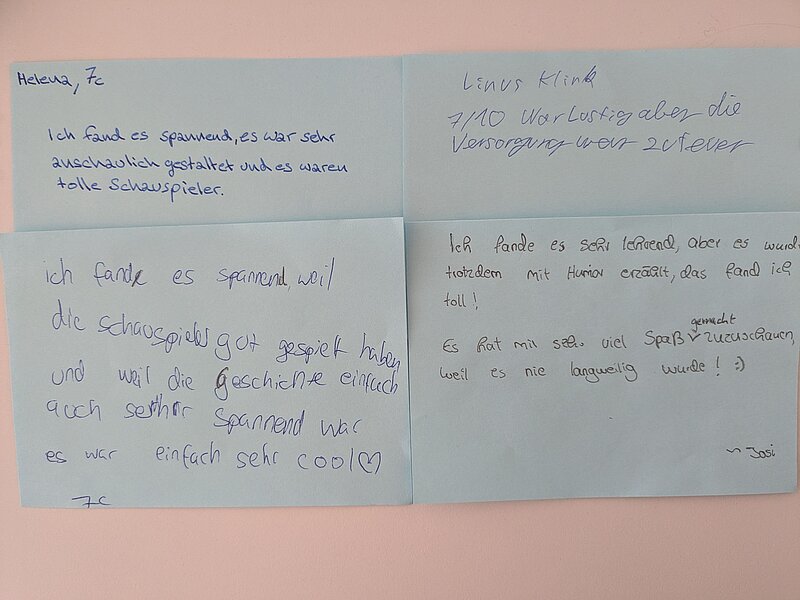 Helena, 7c
Ich fand es spannend, es war sehr
anschaulich gestaltet und es waren
tolle Schauspieler.
Linus Klink
7/10 War Lustig aber die
Versorgung war zu teuer
ich fande es spannend, weil
die schauspieler gut gespielt haben
und weil die geschichte einfach
auch sehr spannend war
es war einfach sehr cool♡
7c
Ich fande es sehr lehrend, aber es wurde
trotzdem mit Humor erzählt, das fand ich
toll!
gemacht
Es hat mir sehr viel Spaß ✓ zuzuschauen,
weil es nie langweilig wurde! :)
~ Josi